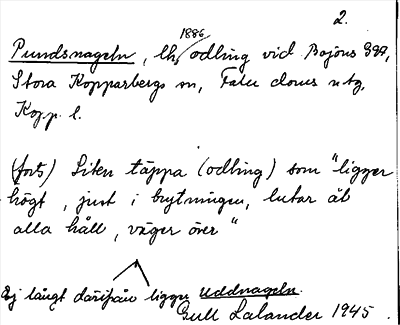 2.
1886
Pundsnageln, lh, odling vid Bojons gård,
Stora Kopparbergs sn, Falu doms utg,
Kopp. l.
(forts) Liten täppa (odling) som "ligger
högt, just i brytningen, lutar åt
alla håll, väger över"
Ej långt därifrån ligger Uddnageln.
Gull Lalander 1945.